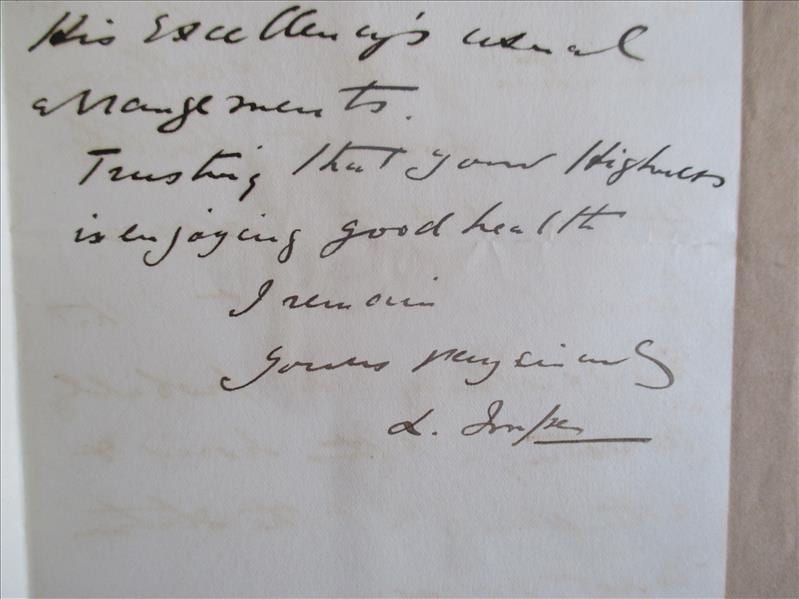 His Excellency's usual
arrangements.
Trusting that your Highness
is enjoying good health
I remain
Yours very sincerely
L.